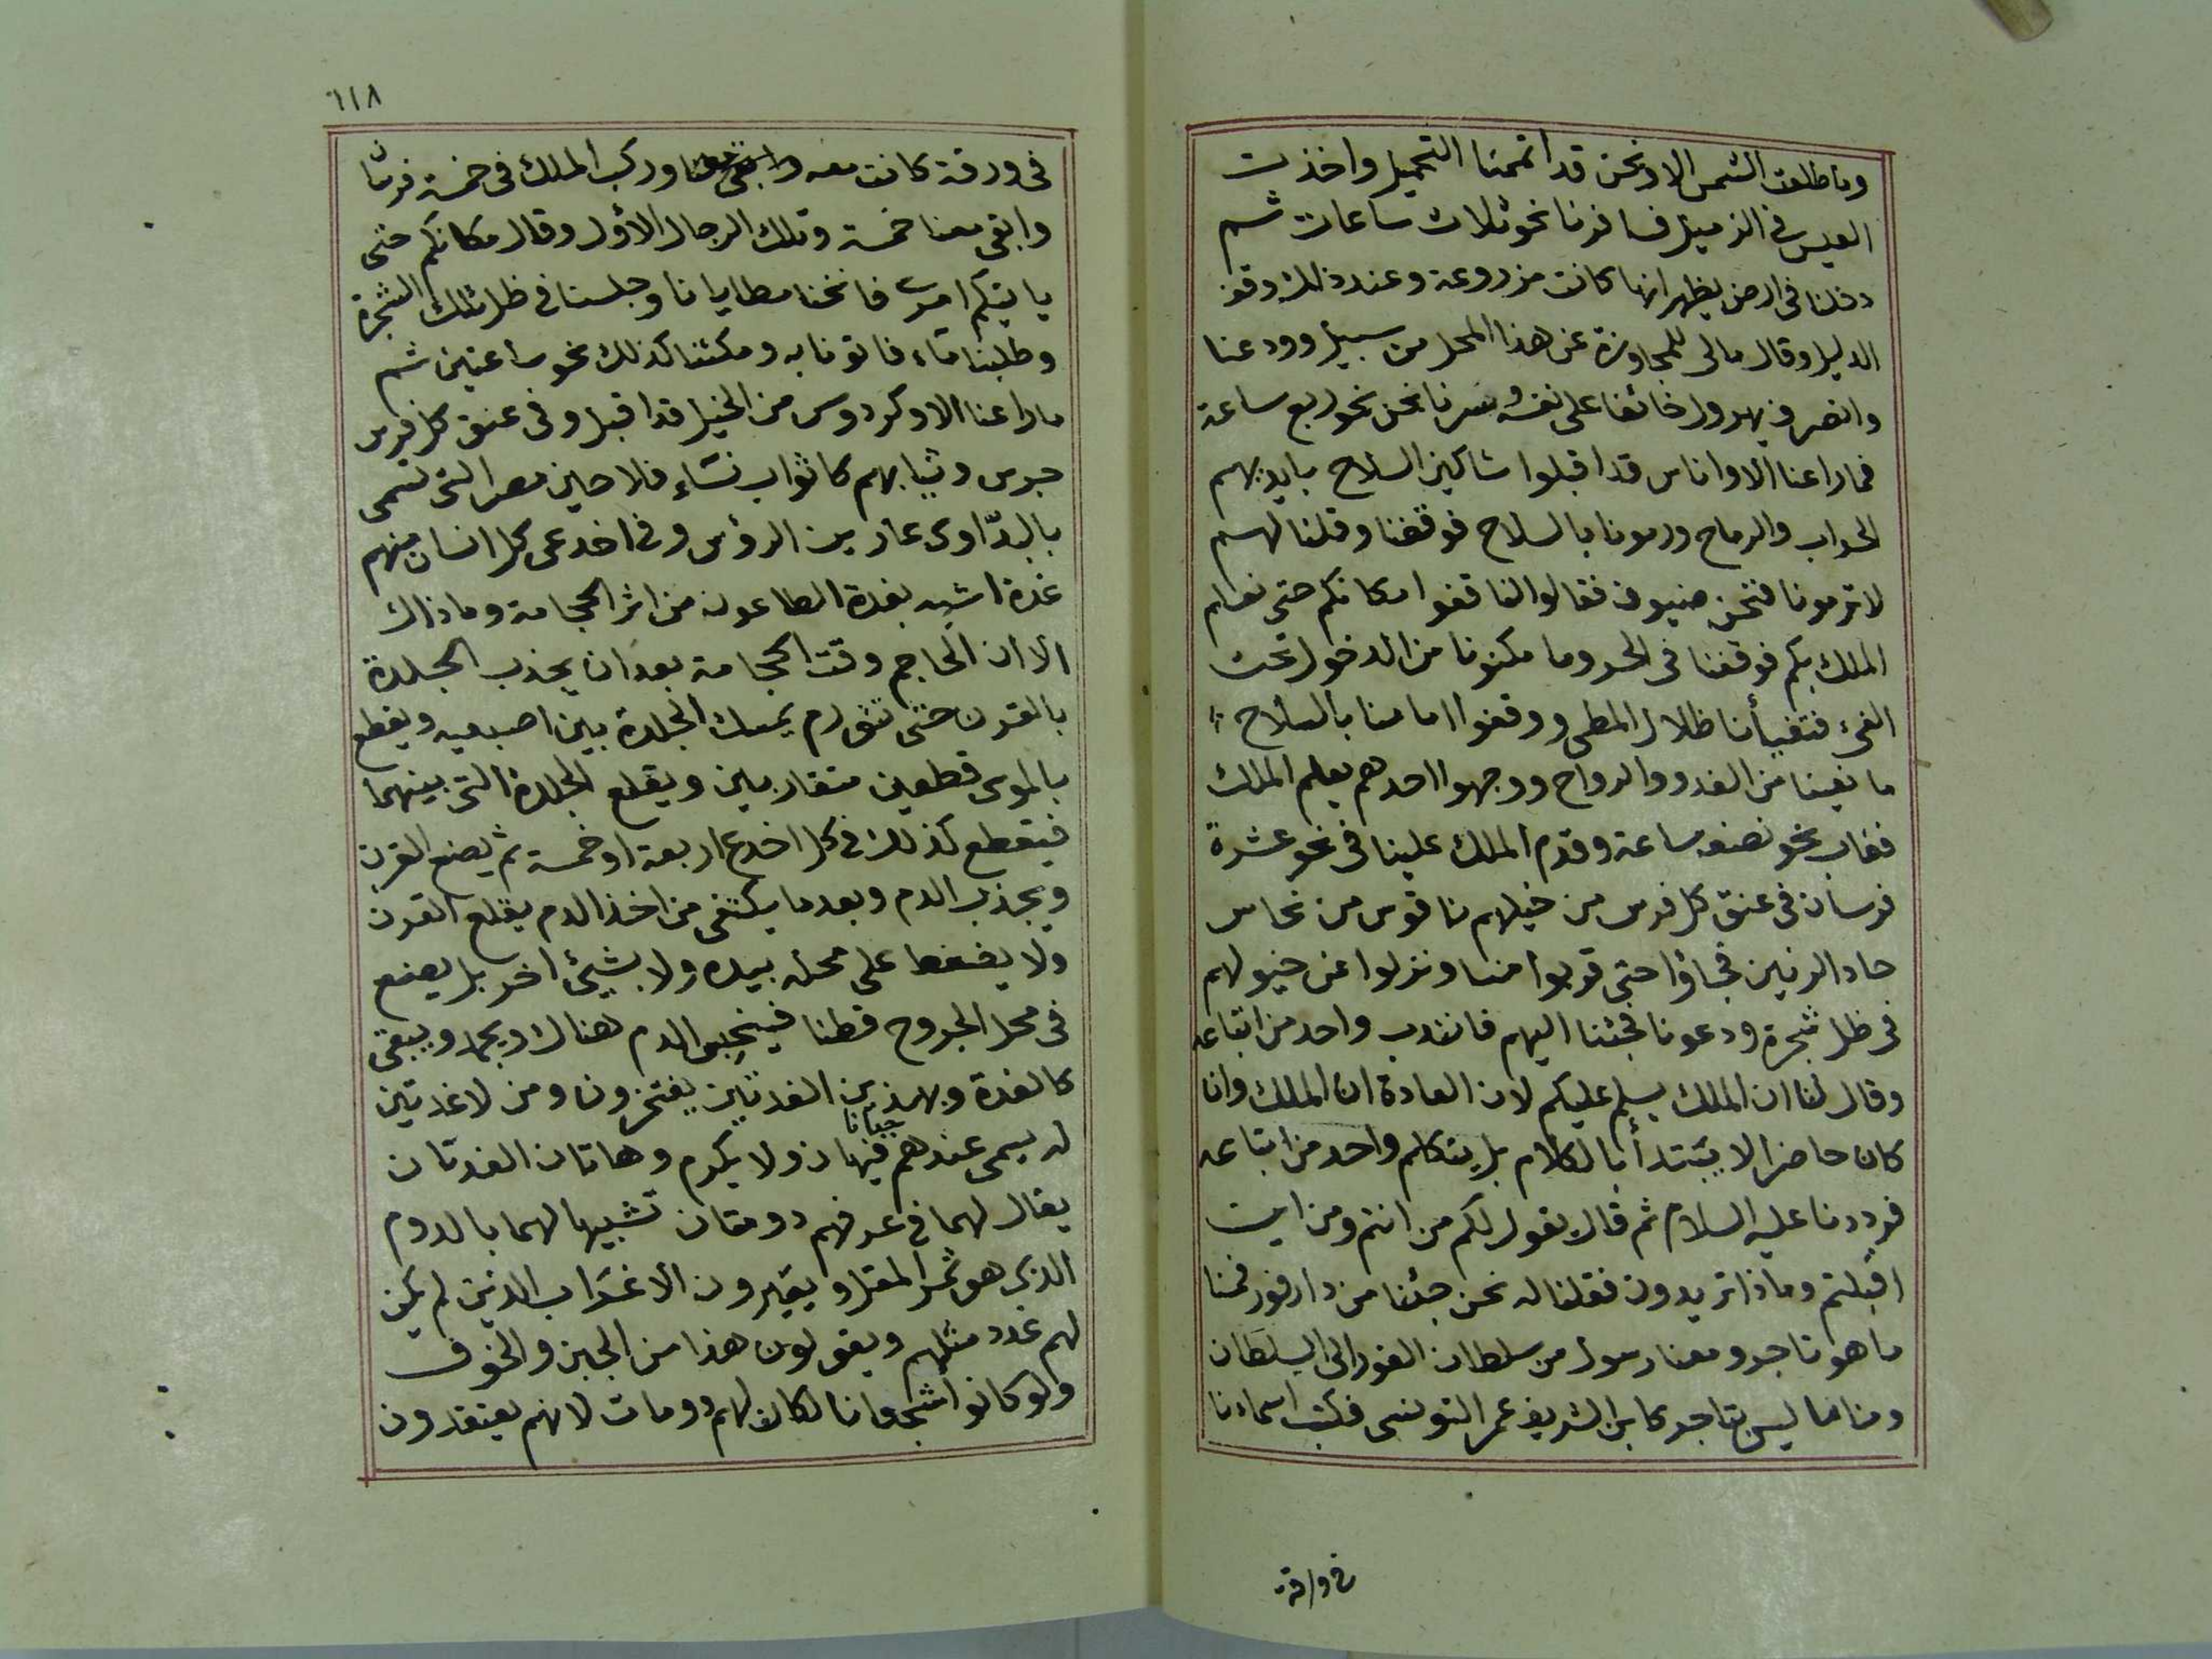 وما طلعت الشمس الا ونحن قد اتممنا التحميل واخذت
العيس في الزميل فسافرنا نحو ثلاث ساعات ثم
دخلنا في ارض يظهر انها كانت مزروعة وعند ذلك وقف
الدليل وقال مالى للمجاوزة عن هذا المحل من سبيل وودعنا
وانصرف يهرول خائفا على نفسه وسرنا نحن نحو ربع ساعة
فما راعنا الا واناس قد اقبلوا شاكين السلاح بايديهم
الحراب والرماح ورمونا بالسلاح فوقفنا وقلنا لهم
لا ترمونا فنحن ضيوف فقالوا لنا قفوا مكانكم حتى نعلم
الملك بكم فوقفنا فى الحر وما مكنونا من الدخول تحت
الفئ فتفيأنا ظلال المطى ووقفوا امامنا بالسلاح
مانعينا من الغدو والرواح ووجهوا احدهم يعلم الملك
فغاب نحو نصف ساعة وقدم الملك علينا فى نحو عشرة
فرسان فى عنق كل فرس من خيلهم ناقوس من نحاس
حاد الرنين فجاؤا حتى قربوا منا ونزلوا عن خيولهم
فى ظل شجرة ودعونا فجئنا اليهم فانتدب واحد من اتباعه
وقال لنا ان الملك يسلم عليكم لان العادة ان الملك وان
كان حاضرا لا يبتدأ بالكلام بل يتكلم واحد من اتباعه
فرددنا عليه السلام ثم قال يقول لكم من انتم ومن اين
اقبلتم وماذا تريدون فقلنا له نحن جئنا من دارفور فمنا
ما هو تاجر ومعنا رسول من سلطان الفور الى السلطان
ومنا من ليس بتاجر كابن الشريف عمر التونسى فكتب اسماءنا
فى ورقة
١١٨
فى ورقة كانت معه وابقى معنا وركب الملك فى خمسة فرسان
وابقى معنا خمسة وتلك الرجال الأول وقال مكانكم حتى
ياتيكم امرى فانخنا مطايانا وجلسنا فى ظل تلك الشجرة
وطلبنا ماء فاتونا به ومكثنا كذلك نحو ساعتين ثم
ما راعنا الا وكردوس من الخيل قد اقبل وفى عنق كل فرس
جرس وثيابهم كاثواب نساء فلاحين مصر التى تسمى
بالبدّاوى عارين الرؤس وفى اخدعى كل انسان منهم
غدة اشبه بغدة الطاعون من اثر الحجامة وما ذاك
الا ان الحاجم وقت الحجامة بعد ان يجذب الجلدة
بالقرن حتى تتورم يمسك الجلدة بين اصبعيه ويقطع
بالموسى قطعين متقاربين ويقلع الجلدة التى بينهما
فيقطع كذلك فى كل اخدع اربعة او خمسة ثم يضع القرن
ويجذب الدم وبعد ما يكتفى من اخذ الدم يقلع القرن
ولا يضغط على محله بيده ولا بشيئ اخر بل يضع
فى محل الجروح قطنا فينحبس الدم هناك ويجمد ويبقى
كالغدة وبهذين الغدتين يفتخرون ومن لا غدتين
له يسمى عندهم جبانا فيهان ولا يكرم وهاتان الغدتان
يقال لهما فى عرفهم دومتان تشبيها لهما بالدوم
الذى هو ثمر المقل ويعيرون الاغراب الذين لم يكن
لهم غدد مثلهم ويقولون هذا من الجبن والخوف
ولو كانوا شجعانا لكان لهم دومات لانهم يعتقدون